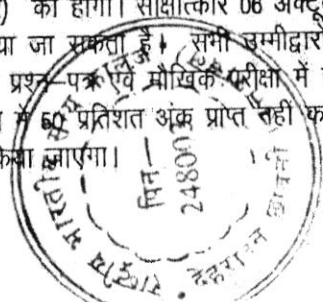 को होगा। साक्षात्कार 06 अक्टू
या जा सकता है। सभी उम्मीदवार
प्रश्न–पत्र एवं मौखिक परीक्षा में
में 50 प्रतिशत अंक प्राप्त नहीं क
किया जाएगा।
राष्ट्रीय भारतीय
कॉलेज
देहरादून
पिन–
24800